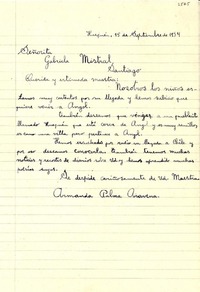 Huequén, 25 de Septiembre de 1954
Señorita
Gabriela Mistral
Santiago
Querida y estimada maestra:
Nosotros los niños es-
tamos muy contentos por su llegada y hemos sabido que
quiere venir a Angol.
También deseamos que venga a un pueblecito
llamado Huequén que está cerca de Angol y es muy sencillo,
es como una villa pero pertenece a Angol.
Hemos escuchado por radio su llegada a Chile y
por eso deseamos conocerla. También tenemos muchas
noticias y recortes de diarios sobre Ud. y hemos aprendido muchas
poesías suyas.
Se despide cariñosamente de Ud. Maestra
Armando Palma Aravena